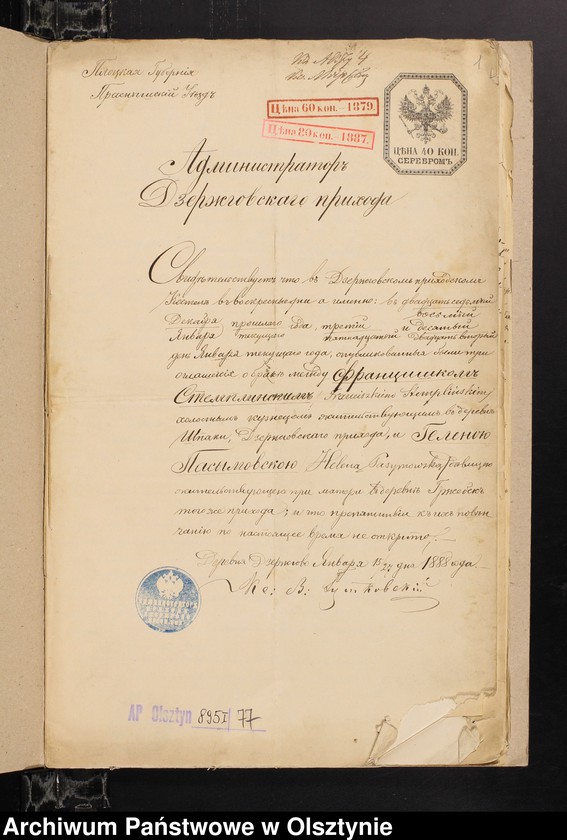 Плоцкая Губернія
Праснышскій Уездъ
1
Цѣна 60 коп.—1879.
Цѣна 80 коп.—1887.
ЦѢНА 40 КОП.
СЕРЕБРОМЪ
Администраторъ
Дзержговскаго прихода
Свидѣтельствуетъ что въ Дзержговскомъ приходскомъ
Костелѣ въ воскресные дни а именно: въ двадцать седьмый восьмый
Декабря прошлаго года, третій и десятый
Января текущаго пятнадцатый двадцать второй
дня Января текущаго года, опубликованы были три
оглашенія о бракѣ между Францишкомъ
Стемплинскимъ Franciszkiem Stemplińskim,
холостымъ кузнецомъ жительствующимъ въ деревнѣ
Шпаки, Дзержговскаго прихода, и Геленою
Пасымовскою, Helena дѣвицею
жительствующею при матери въ деревнѣ Гржебскъ
того же прихода; и что препятствія къ ихъ повѣн
чанію по настоящее время не открыто.—
Деревня Дзержгово Января 15/27 дня 1888 года.—
Кс: В:
АДМИНИСТРАТОРЪ
AP Olsztyn 895I/77
Archiwum Państwowe w Olsztynie